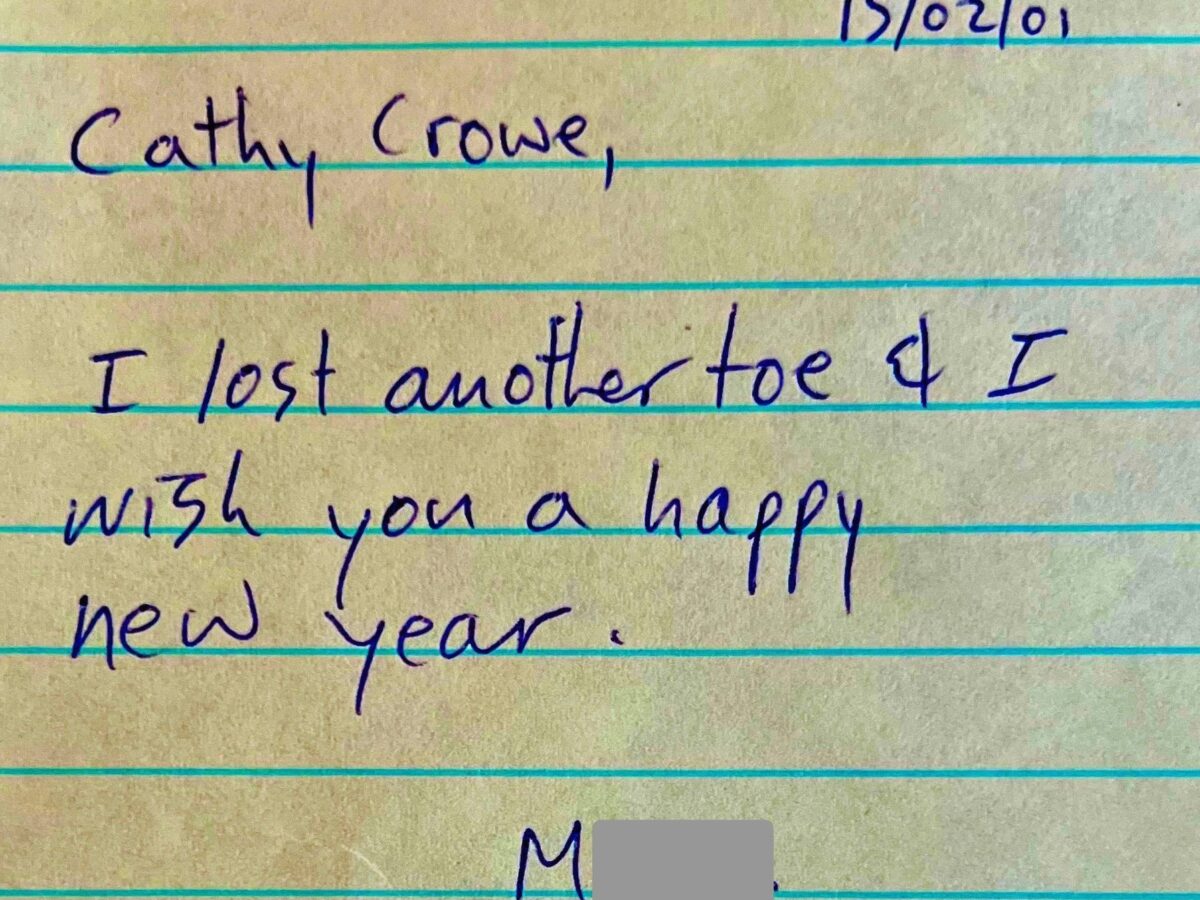 15/02/01
Cathy Crowe,
I lost another toe & I
wish you a happy
new year.
M